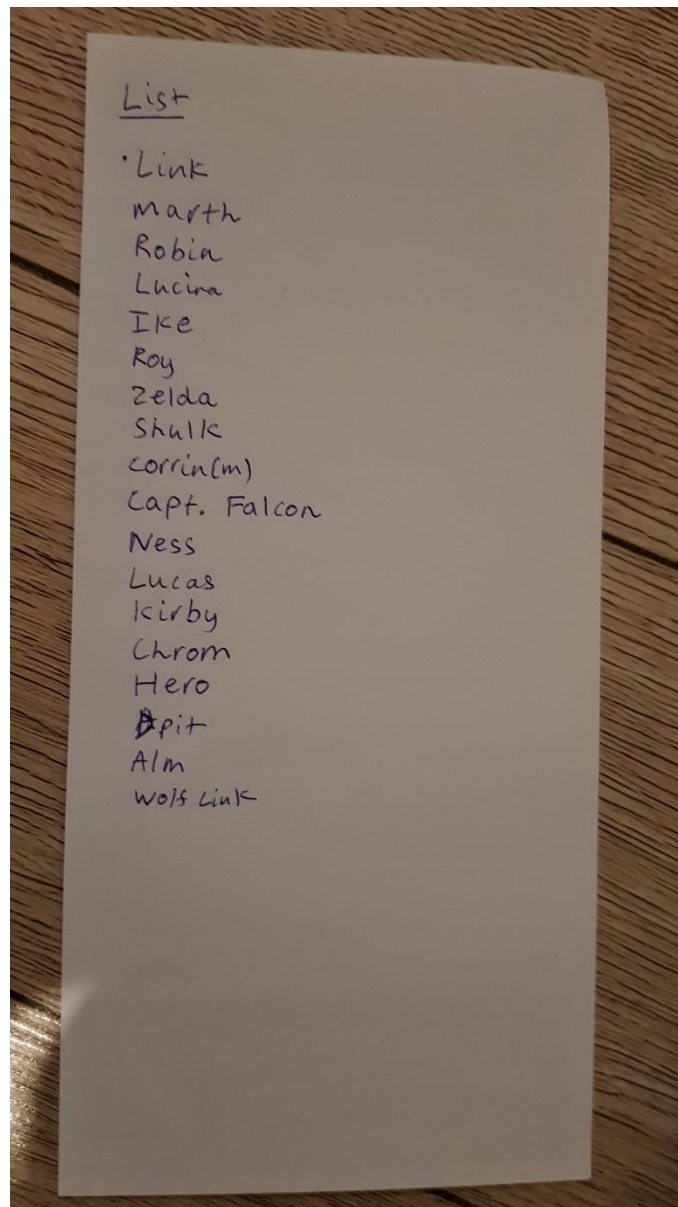 List
· Link
Marth
Robin
Lucina
Ike
Roy
Zelda
Shulk
corrin(m)
Capt. Falcon
Ness
Lucas
Kirby
Chrom
Hero
pit
Alm
Wolf Link